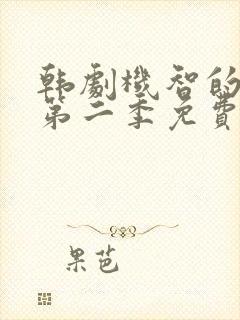 韩劇機智的
第二季免費
果芭